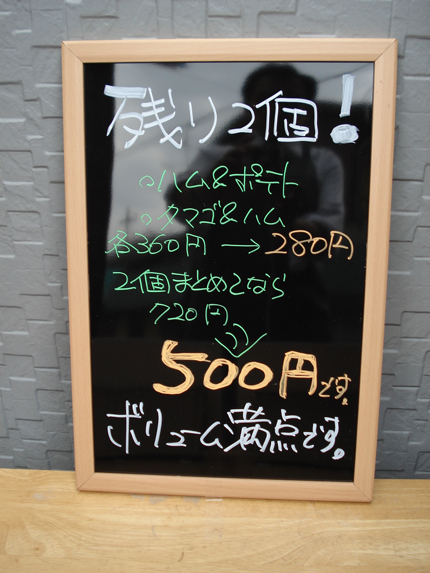 残り2個！
○ハム&ポテト
○タマゴ&ハム
各360円→280円
2個まとめてなら
720円
500円です。
ボリューム満点です。